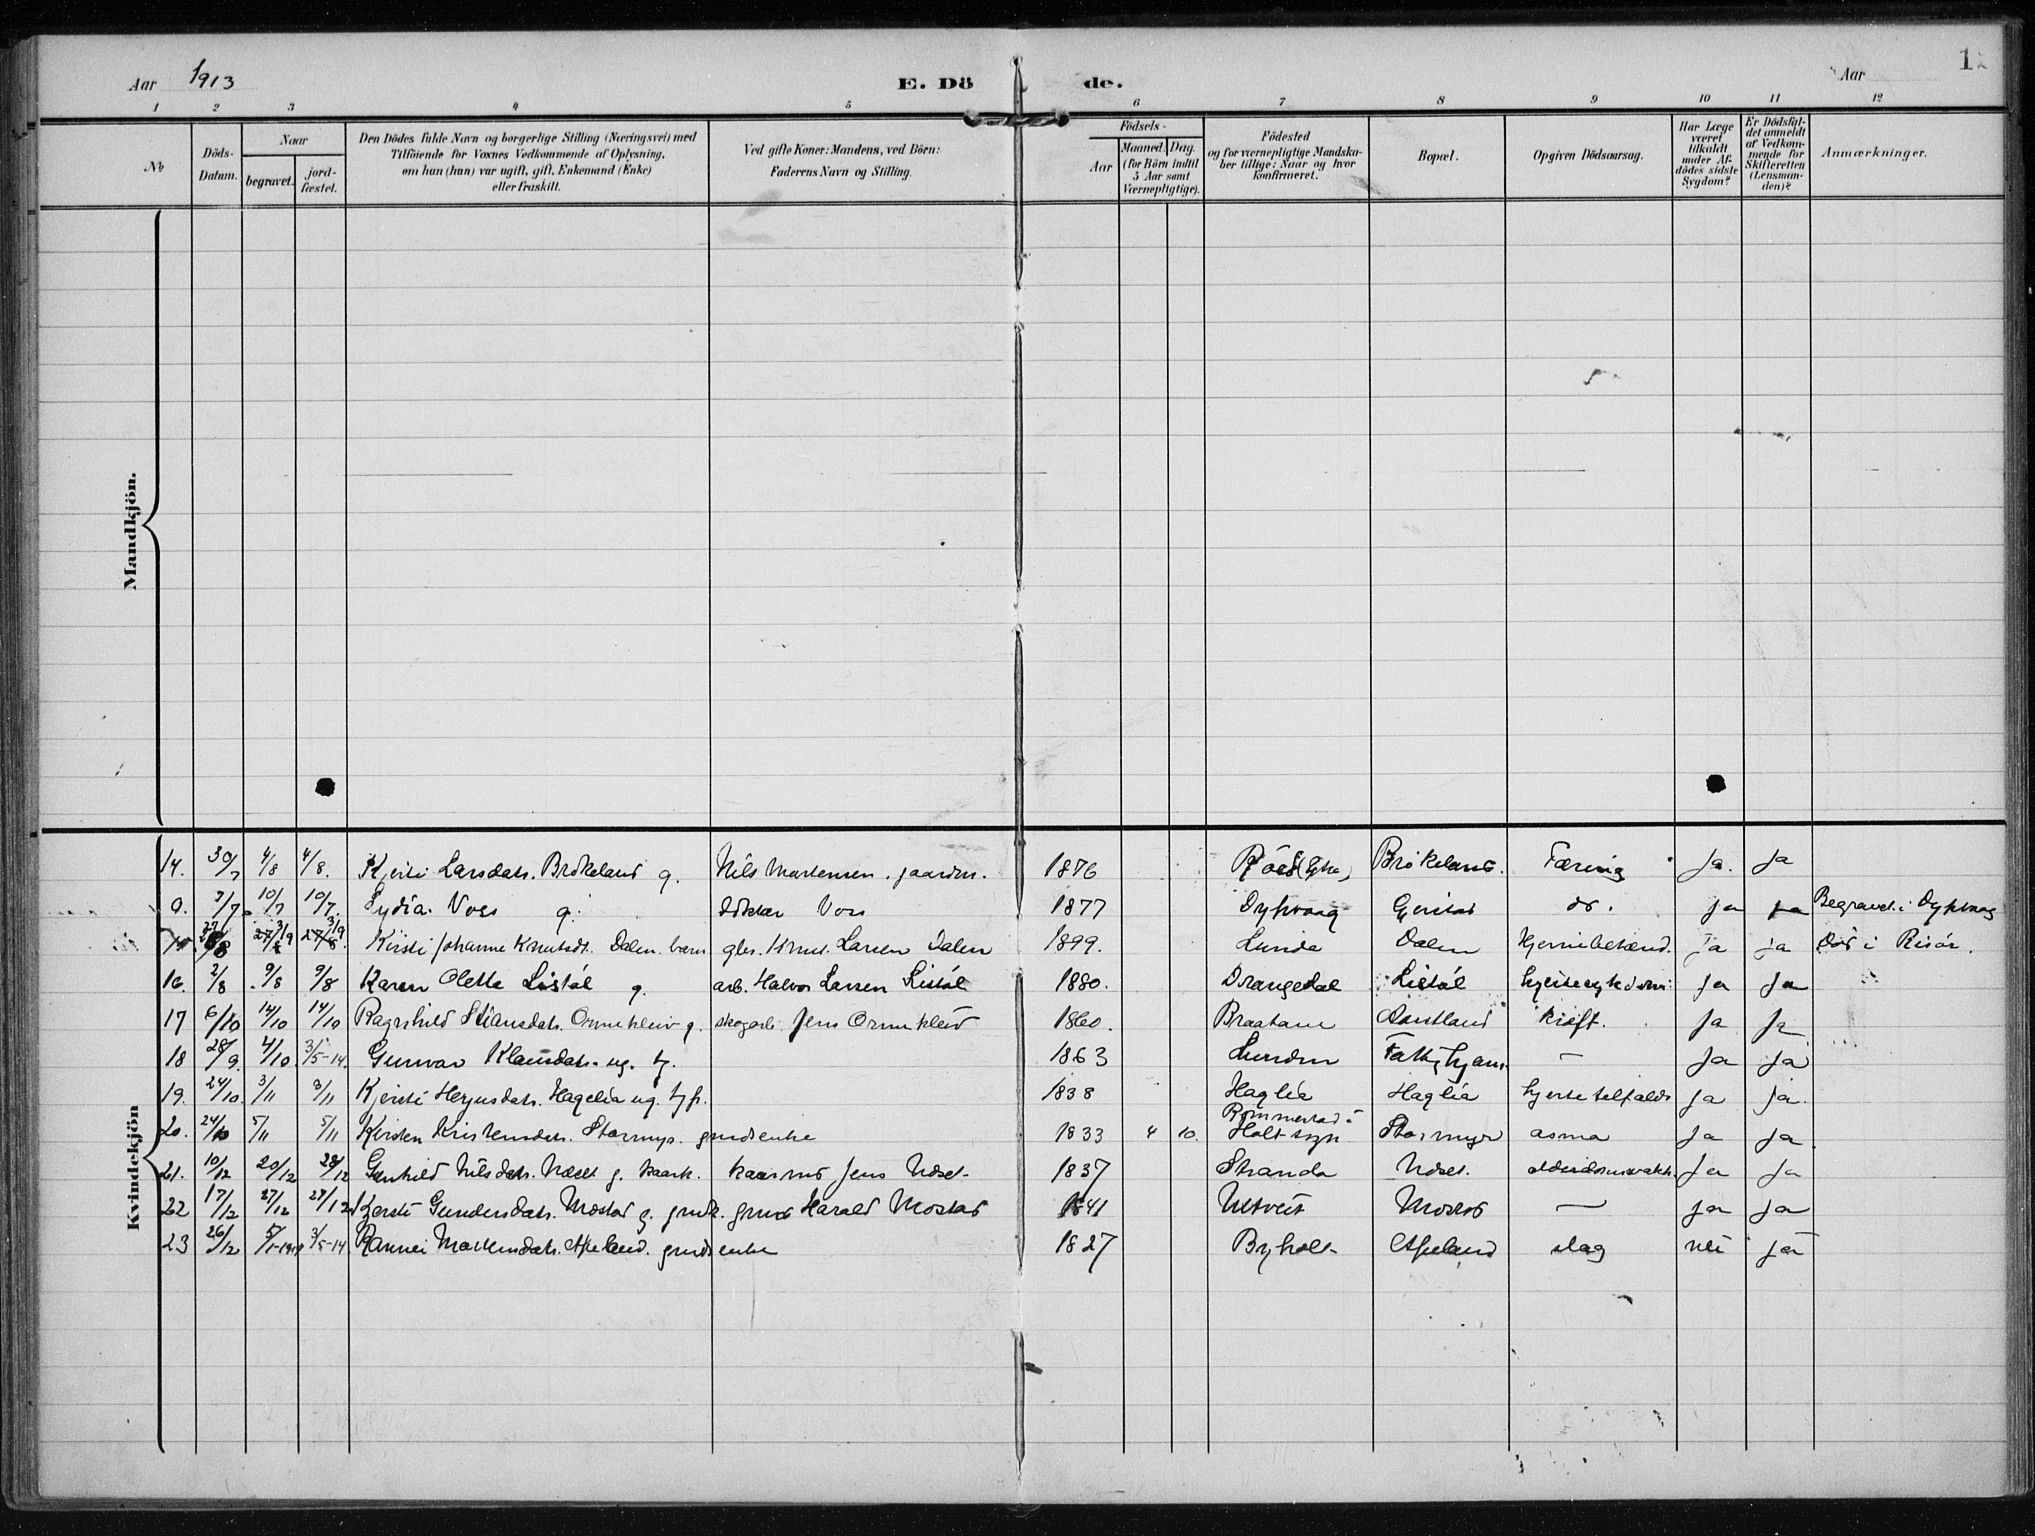 Aar 1913 E. Dö de. Aar
1 2 3 4 5 6 7 8 9 10 11 12
No
Döds-Datum.
Naar
begravet.
jord-fæstet.
Den Dödes fulde Navn og borgerlige Stilling (Næringsvei) med
Tilföiende for Voxnes Vedkommende af Oplysning,
om han (hun) var ugift, gift, Enkemand (Enke)
eller fraskilt.
Ved gifte Koner: Mandens, ved Börn:
Faderens Navn og Stilling.
Födsels-
Aar
Maaned. Dag.
(for Börn indtil
5 Aar samt
Værnepligtige).
Födested
og for værnepligtige Mandska-
ber tillige: Naar og hvor
konfirmeret.
Bopæl.
Opgiven Dödsaarsag.
Har Læge
været
tilkaldt
under Af-
dödes sidste
Sygdom?
Er Dödsfal-
det anmeldt
af Vedkom-
mende for
Skifteretten
(Lensman-
den)?
Anmærkninger.
Mandkjön.
Kvindekjön
14. 30/7 4/8 4/8. Kjersti Larsdatr. Brökeland g. Nils Mortensen. gaardm. 1876 Brökeland. Tæring ja. ja
9. 7/7 10/7 10/7. Lydia Voss g. doktor Voss 1877 Dypvaag Gjerstad do. ja ja Begravet i Dypvaag
27/8 3/9 3/9 Kirsti Johanne Knutsdt. Dalen. barn gbr. Knut Larsen Dalen 1899. Lunde Dalen Hjernebetænd. ja ja Död i Risör.
16. 2/8 9/8 9/8 Karen Olette Listöl g. arb. Halvor Larsen Listöl 1880. Drangedal Listöl hjertesykdom ja ja
17 6/10 14/10 14/10 Ragnhild Stiansdatr. Ormekleiv g. skogarb. Jens Ormekleiv 1860. Braatane kræft. ja ja
18 28/9 4/10. 3/5-14. Gunvor Klausdatr. ug. tj. 1863 Lunden — ja ja
19. 24/10. 3/11 3/11 Kjersti Hagelia ug. 1838 Haglia Haglia hjertetilfælde ja ja.
20. 24/10 5/11 5/11 Kirsten Kristensdatr. Stormyr. grudsenke 1833 4 10. Rømmerstad i
Holt Stormyr asma ja ja.
21. 10/12 20/12 28/12 Gunhild Nilsdatr. Udset g. kaark. kaarmd Jens Udset 1837 Stranda Udset. alderdomssvakh. ja ja
22 17/12 27/12 27/12 Kjersti Gundersdatr. Mostad g. grudk. grud Harald Mostad 1841 Utveit Mostad — ja ja
23 26/12 5/1-1914 3/5-14 Rannei Mortensdatr. Apeland. grudsenke 1827 Byholt Apeland slag nei ja